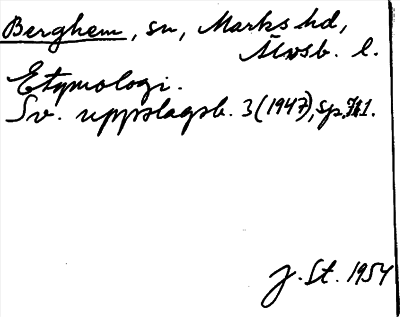 Berghem, sn, Marks hd,
Älvsb. l.
Etymologi.
Sv. uppslagsb. 3 (1947), sp.
J. St. 1954